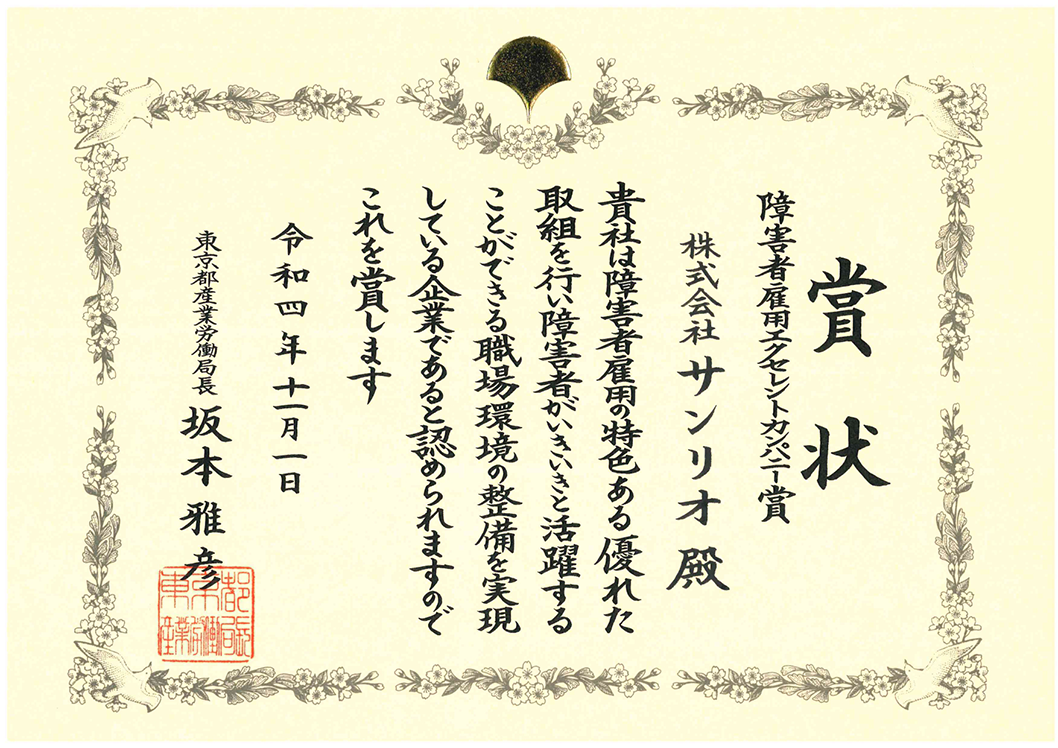 賞状
障害者雇用エクセレントカンパニー賞
株式会社サンリオ殿
貴社は障害者雇用の特色ある優れた
取組を行い障害者がいきいきと活躍する
ことができる職場環境の整備を実現
している企業であると認められますので
これを賞します
令和四年十一月一日
東京都産業労働局長 坂本雅彦